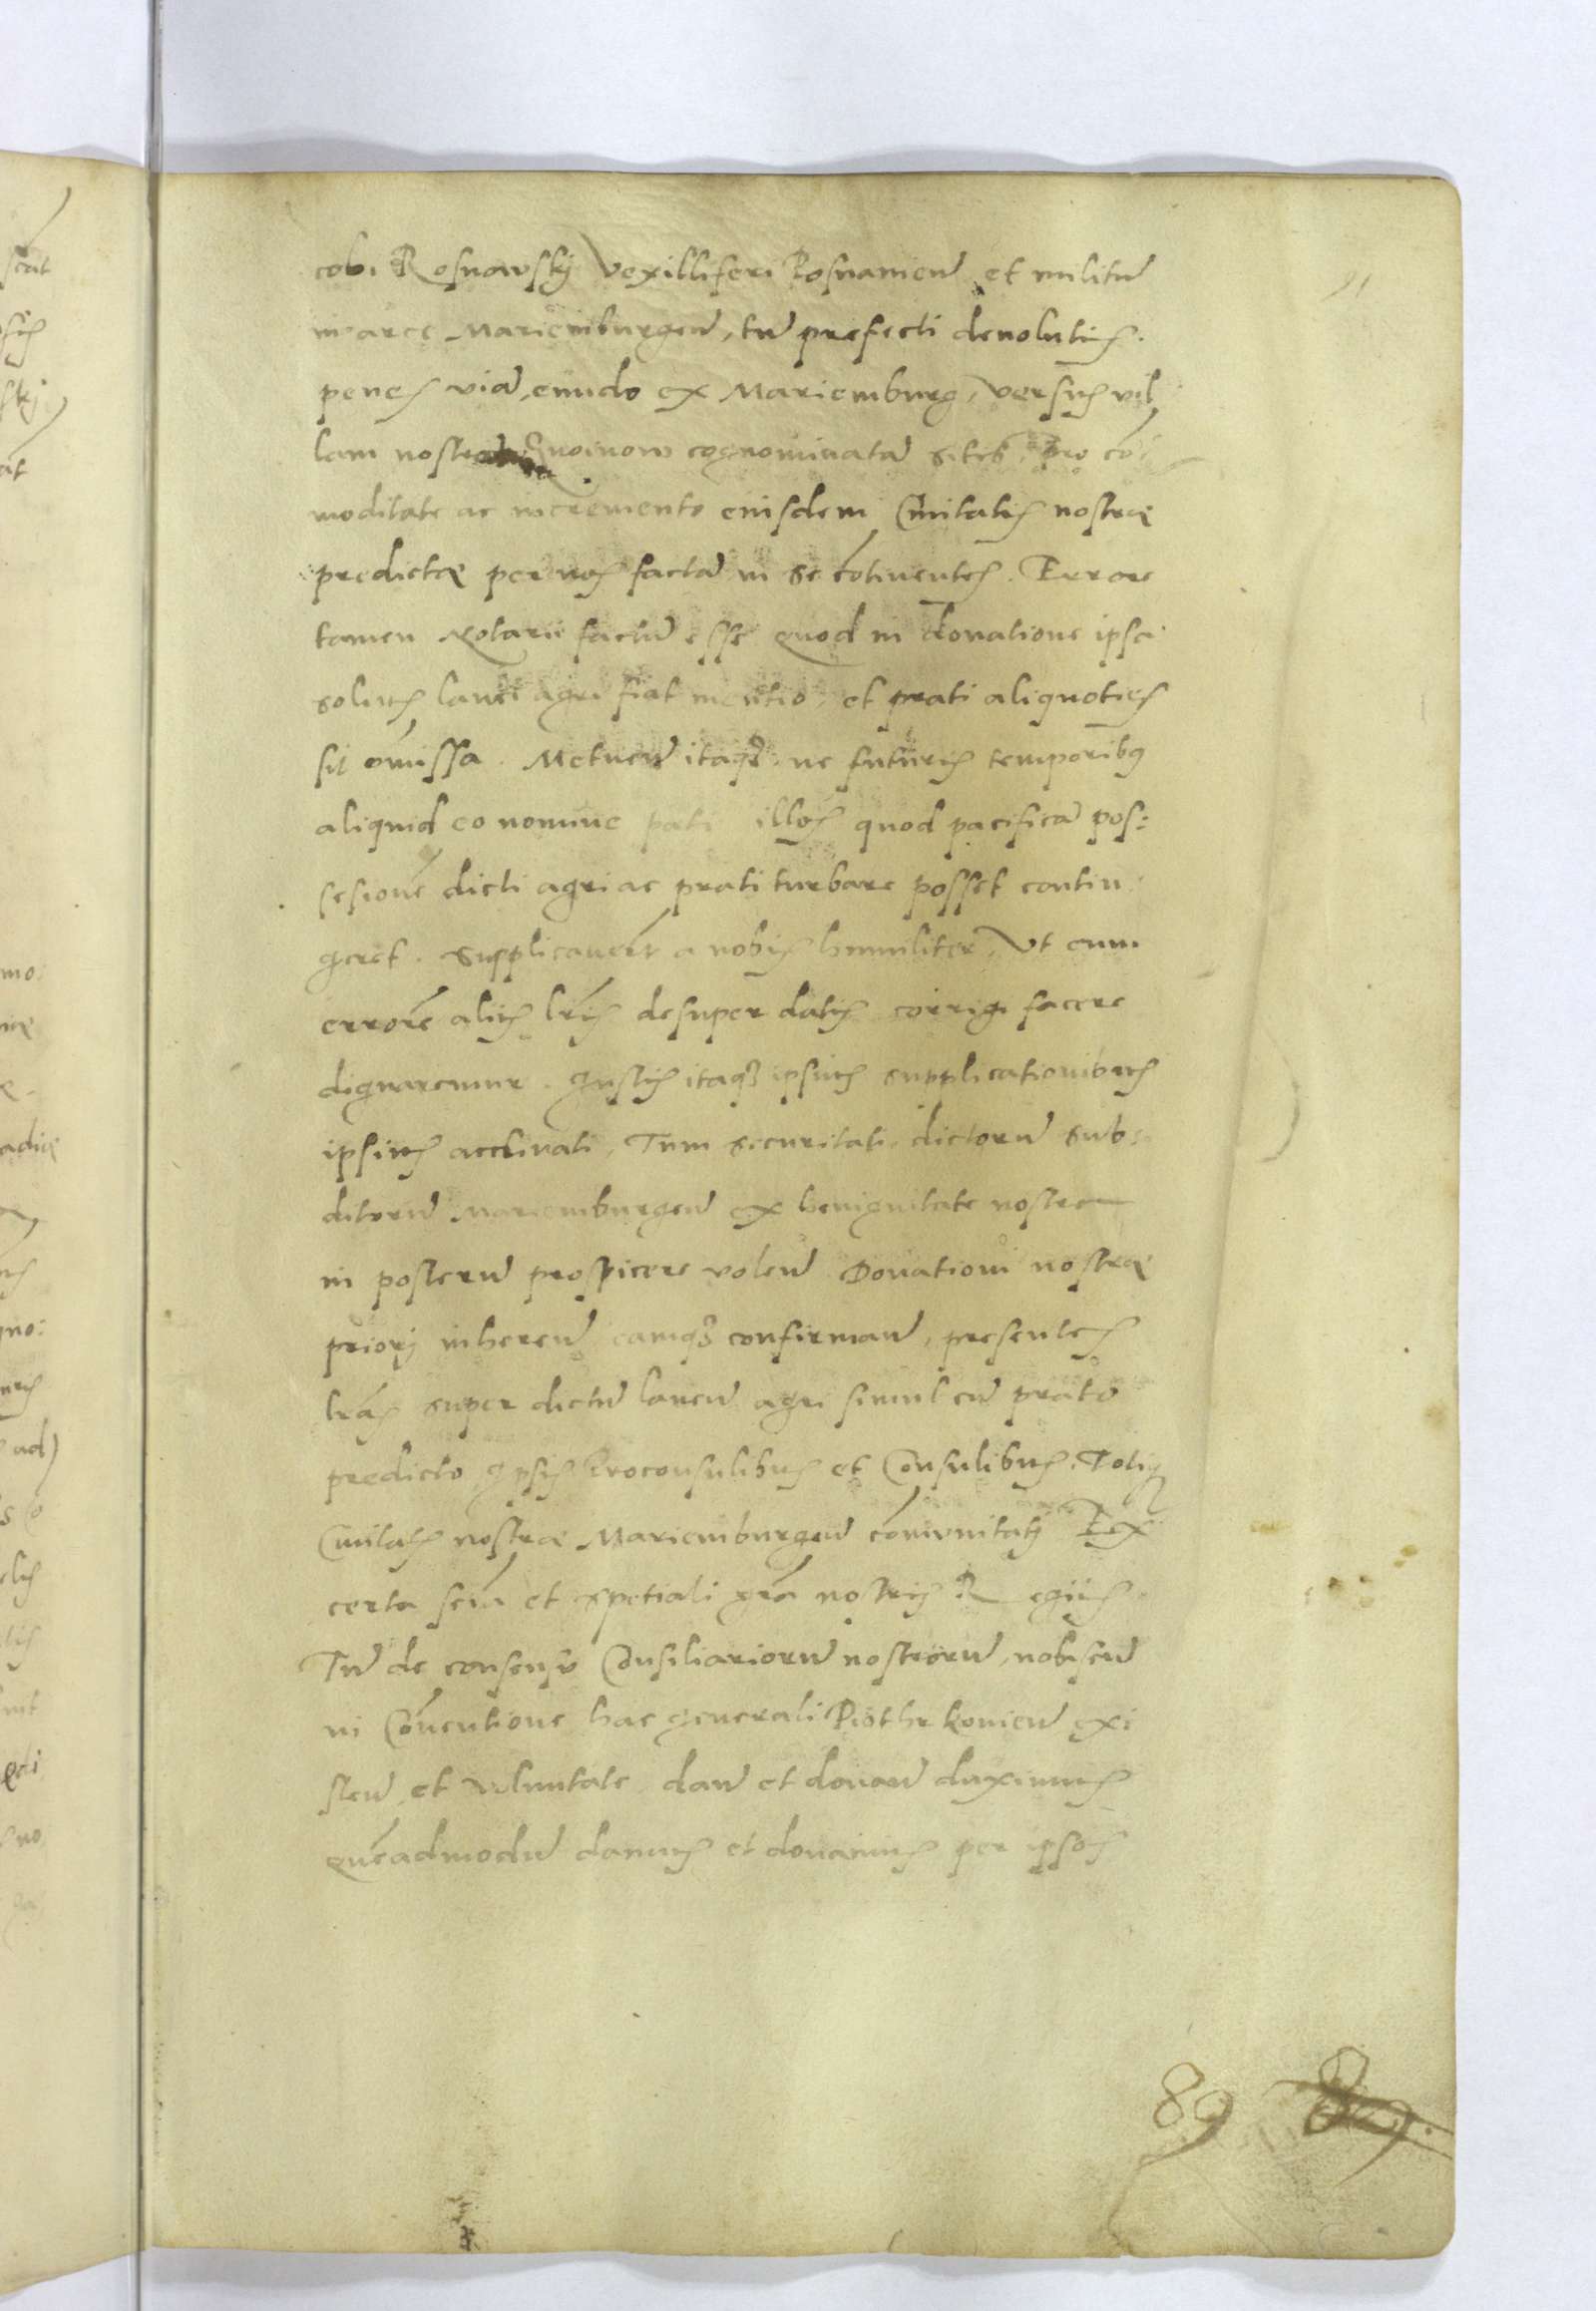 91
cobi Rosnowskÿ Vexilliferi Posnanień et militū
in arce Mariemburgeñ, tū prefecti devolutis.
penes viā, eundo ex Mariemburg, versus vil
lam nostrā cognominatā sitis, pro cō
moditate ac incremento eiusdem Civitatis nostræ
predictæ per nos factā in se cōtinentes. Errore
tamen Notarii factū esse quod in donatione ipsa
solius lanei agri fiat mentio, et prati aliquoties
sit omissa. Metueñ itaqꝫ ne futuris temporibꝰ
aliquid eo nomine pati illos quod pacificā pos:
sesionē dicti agri ac prati turbare posset contin:
geret. Supplicaverūt a nobis humiliter, Vt eum
errorē aliis lr̃is desuper datis corrigi facere
dignaremur. Justis itaqꝫ ipsius supplicationibus
ipsius acclinati, Tum securitati dictorū sub:
ditorū Mariemburgeñ ex benignitate nostra
in posterū prospicere voleñ Donationi nostræ
priorj inhereñ eamqꝫ confirmañ, presentes
lr̃as super dictū laneū agri simul cū prato
predicto Ipsis Proconsulibus et Consulibus. Totiꝰ
Civitatis nostræ Mariemburgeñ cōmunitatj Ex
certa sciā et spetiali grā nostrīs Regiis.
Tū de consensu Consiliariorū nostrorū, nobiscū
in Cōventione hac generali Piothrkovieñ exi
steñ, et voluntate dañ et donañ duximus
quēadmodū damus et donamus per ipsos
89 89.